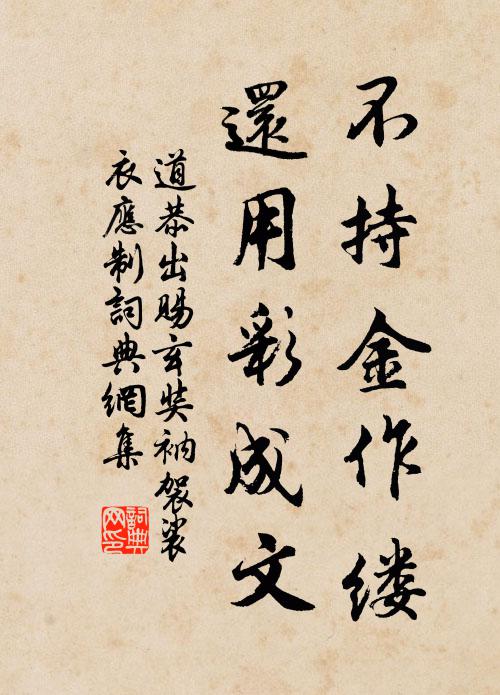 不持金作缕
還用彩成文
道恭出賜玄奘衲袈裟
衣應制詞典網集
詞典
网印